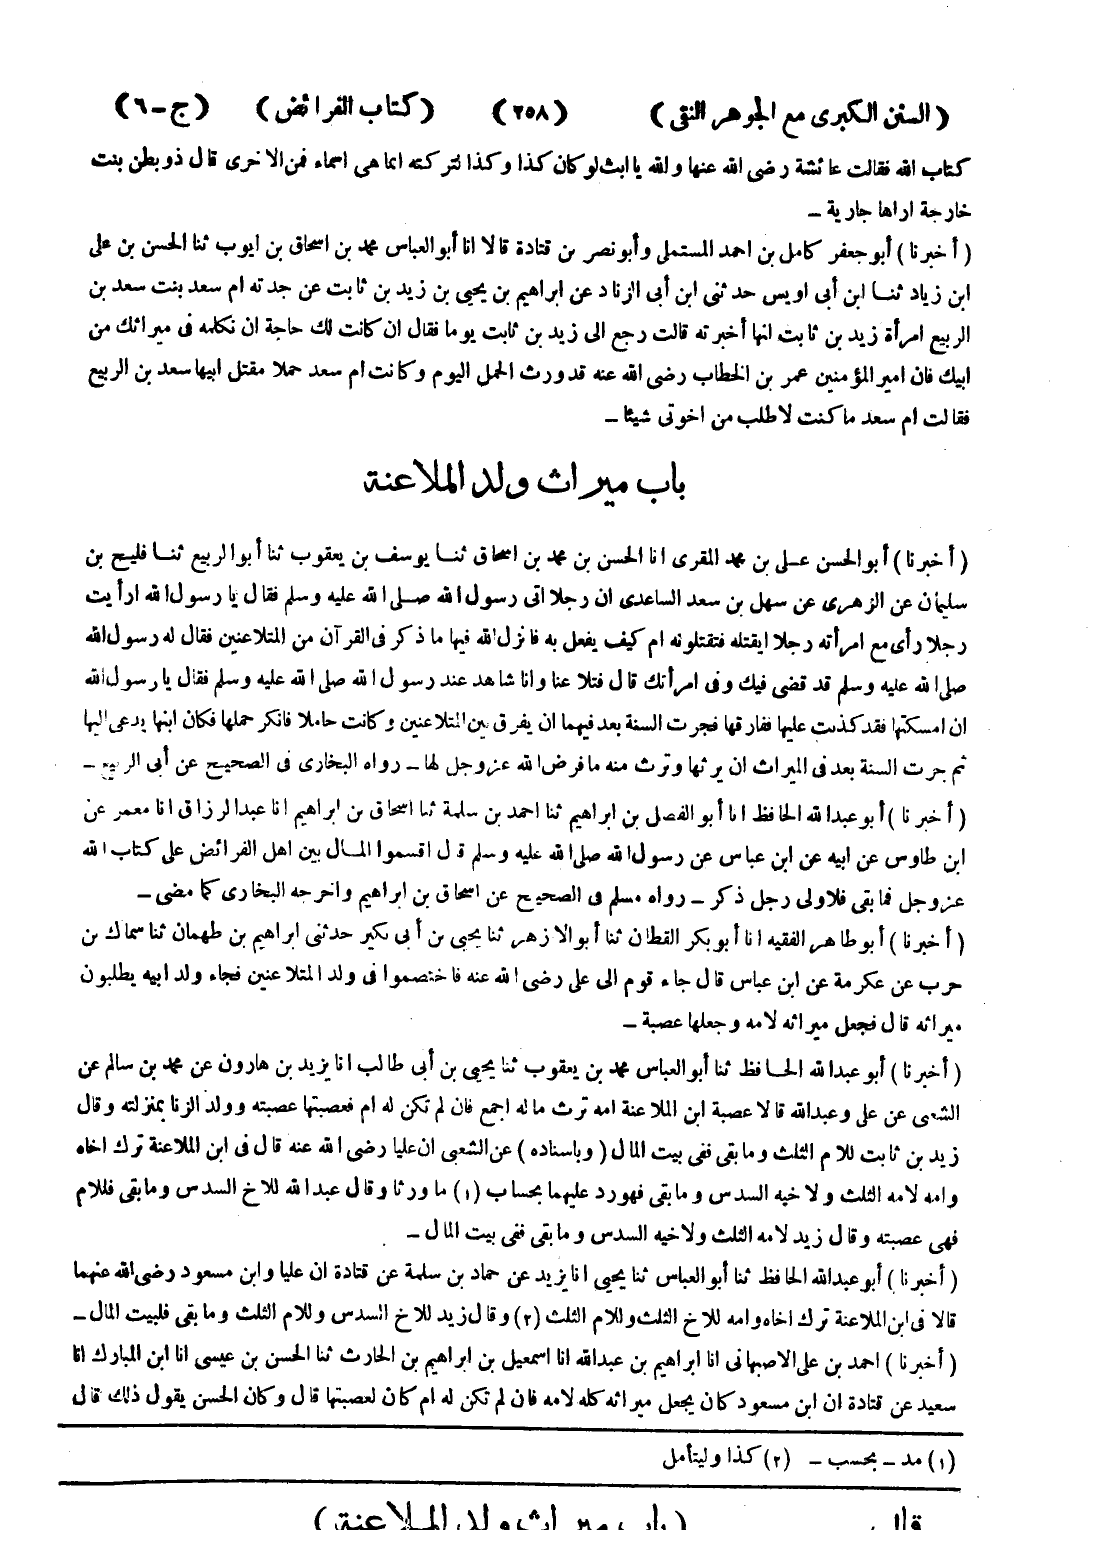 ( السنن الكبرى مع الجوهر النقى ) ( ٢٥٨ ) ( كتاب الفرائض ) ( ج-٦ )
كتاب الله فقالت عائشة رضى الله عنها والله يا ابت لو كان كذا وكذا لتركته انما هى اسماء فمن الاخرى قال ذو بطن بنت
خارجة اراها جارية ـ
( أخبرنا ) أبو جعفر كامل بن احمد المستملى وأبو نصر بن قتادة قالا انا أبو العباس محمد بن اسحاق بن ايوب ثنا الحسن بن على
ابن زياد ثنا ابن أبى اويس حدثنى ابن أبى الزناد عن ابراهيم بن يحيى بن زيد بن ثابت عن جدته ام سعد بنت سعد بن
الربيع امرأة زيد بن ثابت انها أخبرته قالت رجع الى زيد بن ثابت يوما فقال ان كانت لك حاجة ان نكلمه فى ميراثك من
ابيك فان امير المؤمنين عمر بن الخطاب رضى الله عنه قد ورث الحمل اليوم وكانت ام سعد حملا مقتل ابيها سعد بن الربيع
فقالت ام سعد ما كنت لاطلب من اخوتى شيئا ـ
باب ميراث ولد الملاعنة
( أخبرنا ) أبو الحسن على بن محمد المقرى انا الحسن بن محمد بن اسحاق ثنا يوسف بن يعقوب ثنا أبو الربيع ثنا فليح بن
سليمان عن الزهرى عن سهل بن سعد الساعدى ان رجلا اتى رسول الله صلى الله عليه وسلم فقال يا رسول الله ارأيت
رجلا رأى مع امرأته رجلا ايقتله فتقتلونه ام كيف يفعل به فانزل الله فيها ما ذكر فى القرآن من المتلاعنين فقال له رسول الله
صلى الله عليه وسلم قد قضى فيك وفى امرأتك قال فتلاعنا وانا شاهد عند رسول الله صلى الله عليه وسلم فقال يا رسول الله
ان امسكتها فقد كذبت عليها ففارقها فجرت السنة بعد فيهما ان يفرق بين المتلاعنين وكانت حاملا فانكر حملها فكان ابنها يدعى اليها
ثم جرت السنة بعد فى الميراث ان يرثها وترث منه ما فرض الله عز وجل لها ـ رواه البخارى فى الصحيح عن أبى الربيع ـ
( أخبرنا ) أبو عبد الله الحافظ انا أبو الفضل بن ابراهيم ثنا احمد بن سلمة ثنا اسحاق بن ابراهيم انا عبد الرزاق انا معمر عن
ابن طاوس عن ابيه عن ابن عباس عن رسول الله صلى الله عليه وسلم قال اقسموا المال بين اهل الفرائض على كتاب الله
عز وجل فما بقى فلاولى رجل ذكر ـ رواه مسلم فى الصحيح عن اسحاق بن ابراهيم واخرجه البخارى كما مضى ـ
( أخبرنا ) أبو طاهر الفقيه انا أبو بكر القطان ثنا أبو الازهر ثنا يحيى بن أبى بكير حدثنى ابراهيم بن طهمان ثنا سماك بن
حرب عن عكرمة عن ابن عباس قال جاء قوم الى على رضى الله عنه فاختصموا فى ولد المتلاعنين فجاء ولد ابيه يطلبون
ميراثه قال فجعل ميراثه لامه وجعلها عصبة ـ
( أخبرنا ) أبو عبد الله الحافظ ثنا أبو العباس محمد بن يعقوب ثنا يحيى بن أبى طالب انا يزيد بن هارون عن محمد بن سالم عن
الشعبى عن على وعبد الله قالا عصبة ابن الملاعنة امه ترث ماله اجمع فان لم تكن له ام فعصبتها عصبته وولد الزنا بمنزلته وقال
زيد بن ثابت للام الثلث وما بقى ففى بيت المال ( وباسناده ) عن الشعبى ان عليا رضى الله عنه قال فى ابن الملاعنة ترك اخاه
وامه لامه الثلث ولاخيه السدس وما بقى فهو رد عليهما بحساب (١) ما ورثا وقال عبد الله للاخ السدس وما بقى فللام
فهى عصبته وقال زيد لامه الثلث ولاخيه السدس وما بقى ففى بيت المال ـ
( أخبرنا ) أبو عبد الله الحافظ ثنا أبو العباس ثنا يحيى انا يزيد عن حماد بن سلمة عن قتادة ان عليا وابن مسعود رضى الله عنهما
قالا فى ابن الملاعنة ترك اخاه وامه للاخ الثلث وللام الثلث (٢) وقال زيد للاخ السدس وللام الثلث وما بقى فلبيت المال ـ
( أخبرنا ) احمد بن على الاصبهانى انا ابراهيم بن عبد الله انا اسمعيل بن ابراهيم بن الحارث ثنا الحسن بن عيسى انا ابن المبارك انا
سعيد عن قتادة ان ابن مسعود كان يجعل ميراثه كله لامه فان لم تكن له ام كان لعصبتها قال وكان الحسن يقول ذلك قال
(١) مد ـ بحسب ـ (٢) كذا وليتأمل
قال ( باب ميراث ولد الملاعنة )